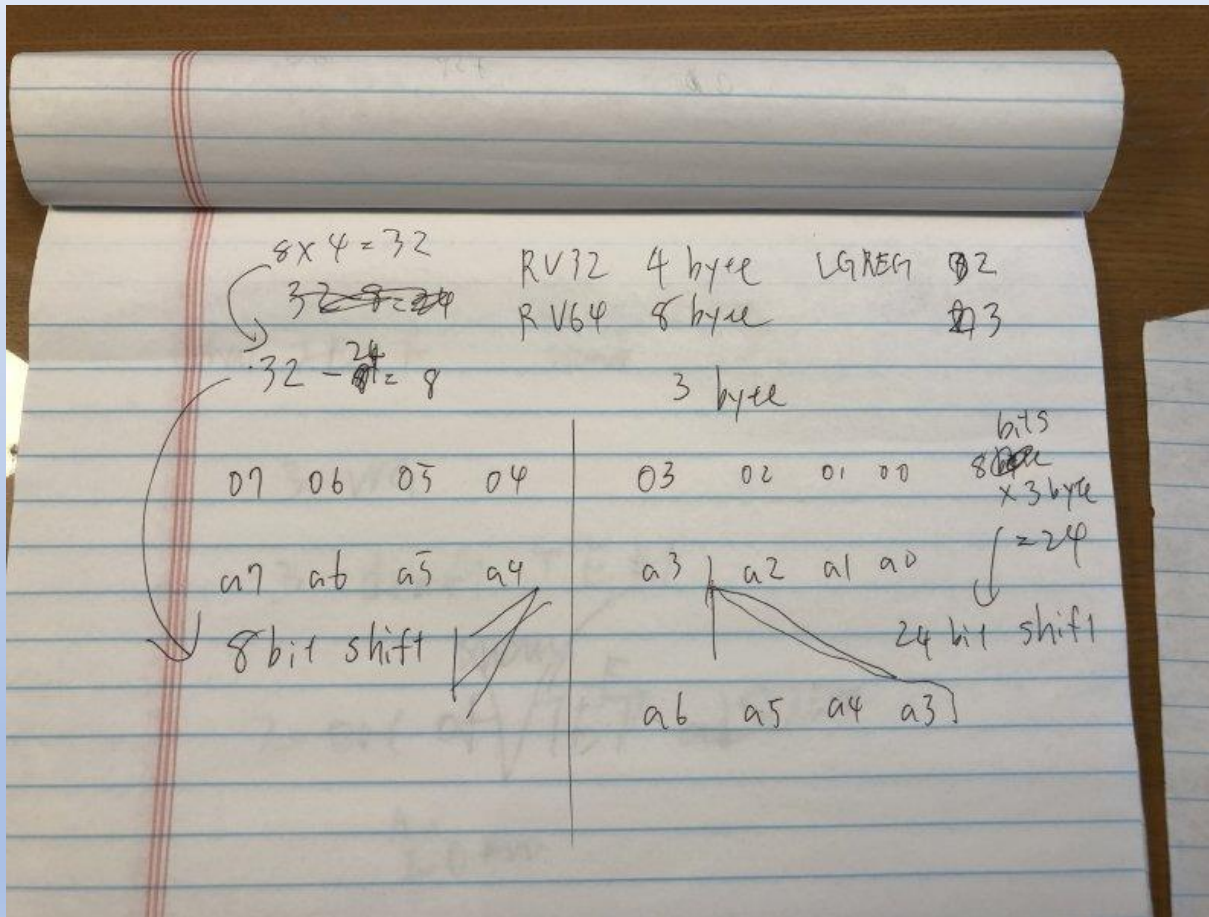 8 x 4 = 32 RV32 4 byte LGREG 2
32 - 8 = 24 RV64 8 byte 3
32 - 24 = 8 3 byte
bits
07 06 05 04 03 02 01 00 8
x 3 byte
= 24
a7 a6 a5 a4 a3 a2 a1 a0
8 bit shift 24 bit shift
a6 a5 a4 a3